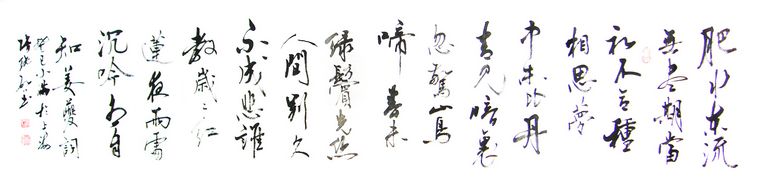 肥水东流
無尽期當
初不合種
相思夢
中未比丹
青見暗裏
忽驚山鳥
啼春未
绿鬢先丝
人間别久
不成悲誰
教歲々红
蓮夜兩處
沉吟各自
知姜夔詞
癸巳小暑於上海